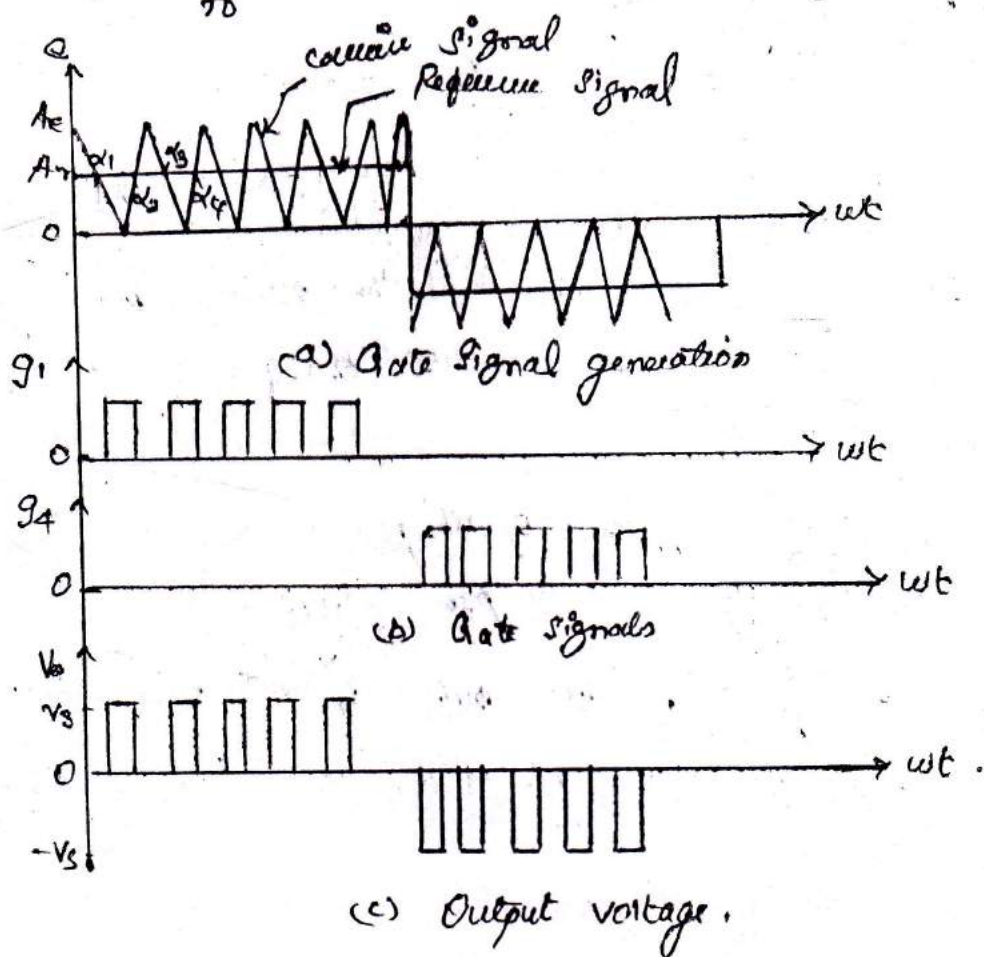 e
carrier signal
Reference signal
Ac
Ar
α1
α3
α2
α4
0
wt
(a) Gate Signal generation
g1
0
wt
g4
0
wt
(b) Gate signals
Vo
Vs
0
wt .
-Vs
(c) Output voltage .